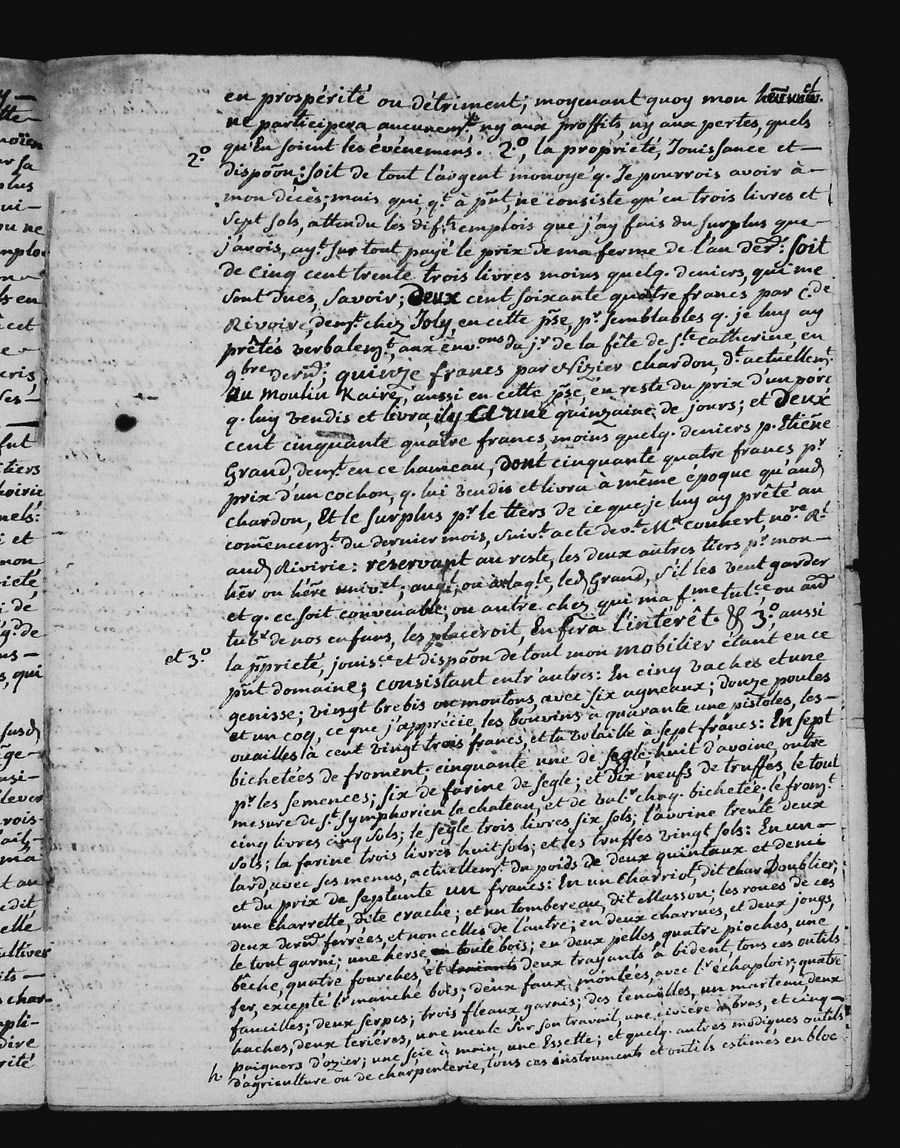 en prospérité ou détriment; moyenant quoy mon
ne participera aucunemt. ny aux proffits, ny aux pertes, quels
qu'En soient les événemens. 2.o, la propriété, Jouissance et
2.o
dispõon: soit de tout l'argent monoyé q. Je pourrois avoir à
mon décès; mais qui qt. à pñt, ne consiste qu'en trois livres et
sept sols, attendu les difts. emplois que j'ay fais du surplus que
j'avois, ayt. sur tout payé le prix de ma ferme de l'an der.: soit
de cinq cent trente trois livres moins quelq. deniers, qui me
sont dues, savoir; deux cent soixante quatre francs par C.de
Rivoire, demt. chez Joly, en cette pse, pr. semblables q. je luy ay
prêtés verbalemt. aux env.ons du jr. de la fête de ste. Catherine, en
9bre dernr.; quinze francs par Nizier chardon, dt. actuellemt.
Au Moulin Kaire, aussi en cette pse, en reste du prix d'un porc
q. luy vendis et livra, ily a une quinzaine de jours; et deux
cent cinquante quatre francs, moins quelq. deniers p. Etiene
Grand, demt. en ce hameau, dont cinquante quatre francs pr.
prix d'un cochon, q. lui vendis et livra à même époque qu'aud
chardon, Et le surplus pr. le tiers de ce que je luy ay prêté au
comencemt. du dernier mois, suivt. acte devt. Me couhert, nore. Rl.
aud Rivirie: réservant au reste, les deux autres tiers pr. mon
hér ou hére univ.el, ou led Grand, s'il les veut garder
et q. ce soit convenable; ou autre chez qui ma fme tutce ou aud
tutr. de nos enfans, les placeroit, Enfera l'intérêt. & 3.o, aussi
et 3.o
la pprieté, jouisce et dispõon de tout mon mobilier étant en ce
pñt domaine; consistant entr'autres: En cinq vaches et une
genisse; vingt brebis ou moutons, avec six agneaux; douze poules
et un coq, ce que j'apprécie, les bouvins à quarante une pistoles, les
ouailles à cent vingt trois francs, et la volaille à sept francs: En sept
bichetées de froment. cinquante une de segle, huit d'avoine, outre
pr. les semences; six de farine de segle; et dix neufs de truffes, le tout
mesure de st. Symphorien le chateau, et de valr. chaq. bichetée. le fromt.
cinq livres cinq sols; le segle trois livres six sols; l'avoine trente deux
sols; la farine trois livres huit sols; et les truffes vingt sols: En un
lard avec ses menus, actuellemt. du poids de deux quintaux et demi
et du prix de septante un francs: En un Charriot, dit char Doublier;
une charrette, dite crache; et un tombereau, dit Masson; les roues de ces
deux dernr. ferrées, et non celles de l'autre; en deux charrues, et deux jougs,
le tout garni; une herse en toute bois; en deux pelles, quatre pioches, une
bêche, quatre fourches, et deux trayants à bident tous ces outils
fer, excepté lr. manche bois; deux faux, montées, avec lr. échaploir; quatre
faucilles; deux serpes; trois fleaux garnis; des tenailles, un marteau deux
haches, deux terières, une meule sur son travail, une civière à bras, et cinq
paigners d'ozier; une scie à main, une Essette; et quelq. autres modiques outils
d'agriculture ou de charpenterie, tous ces instruments et outils estimés en bloc